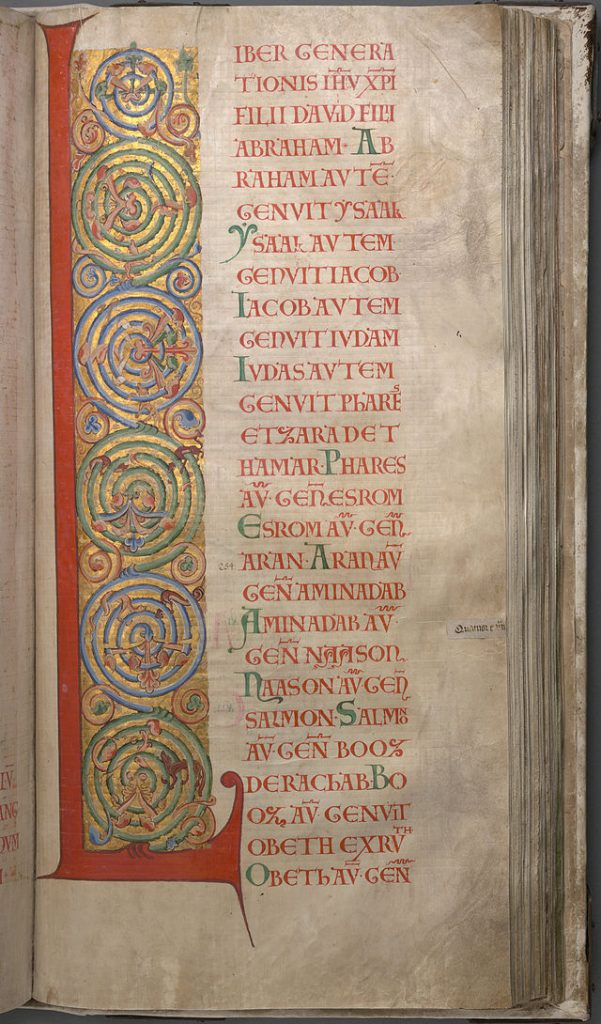 L
IBER GENERA
TIONIS IHU XPI
FILII DAVID FILI
ABRAHAM · AB
RAHAM AUTE ·
GENUIT YSAAK
YSAAK AUTEM
GENUIT IACOB ·
IACOB AUTEM
GENUIT IUDAM
IUDAS AUTEM
GENUIT PHARES
ET ZARA DE T
HAMAR · PHARES
AU · GEN ESROM
ESROM AU · GEN
ARAN · ARAN AU
GEN AMINADAB
AMINADAB AU ·
GEN NAASON
NAASON AU GEN
SALMON · SALMO
AU · GEN BOOZ
DE RACHAB · BO
OZ AU · GENUIT
OBETH EX RUTH
OBETH AU · GEN
284